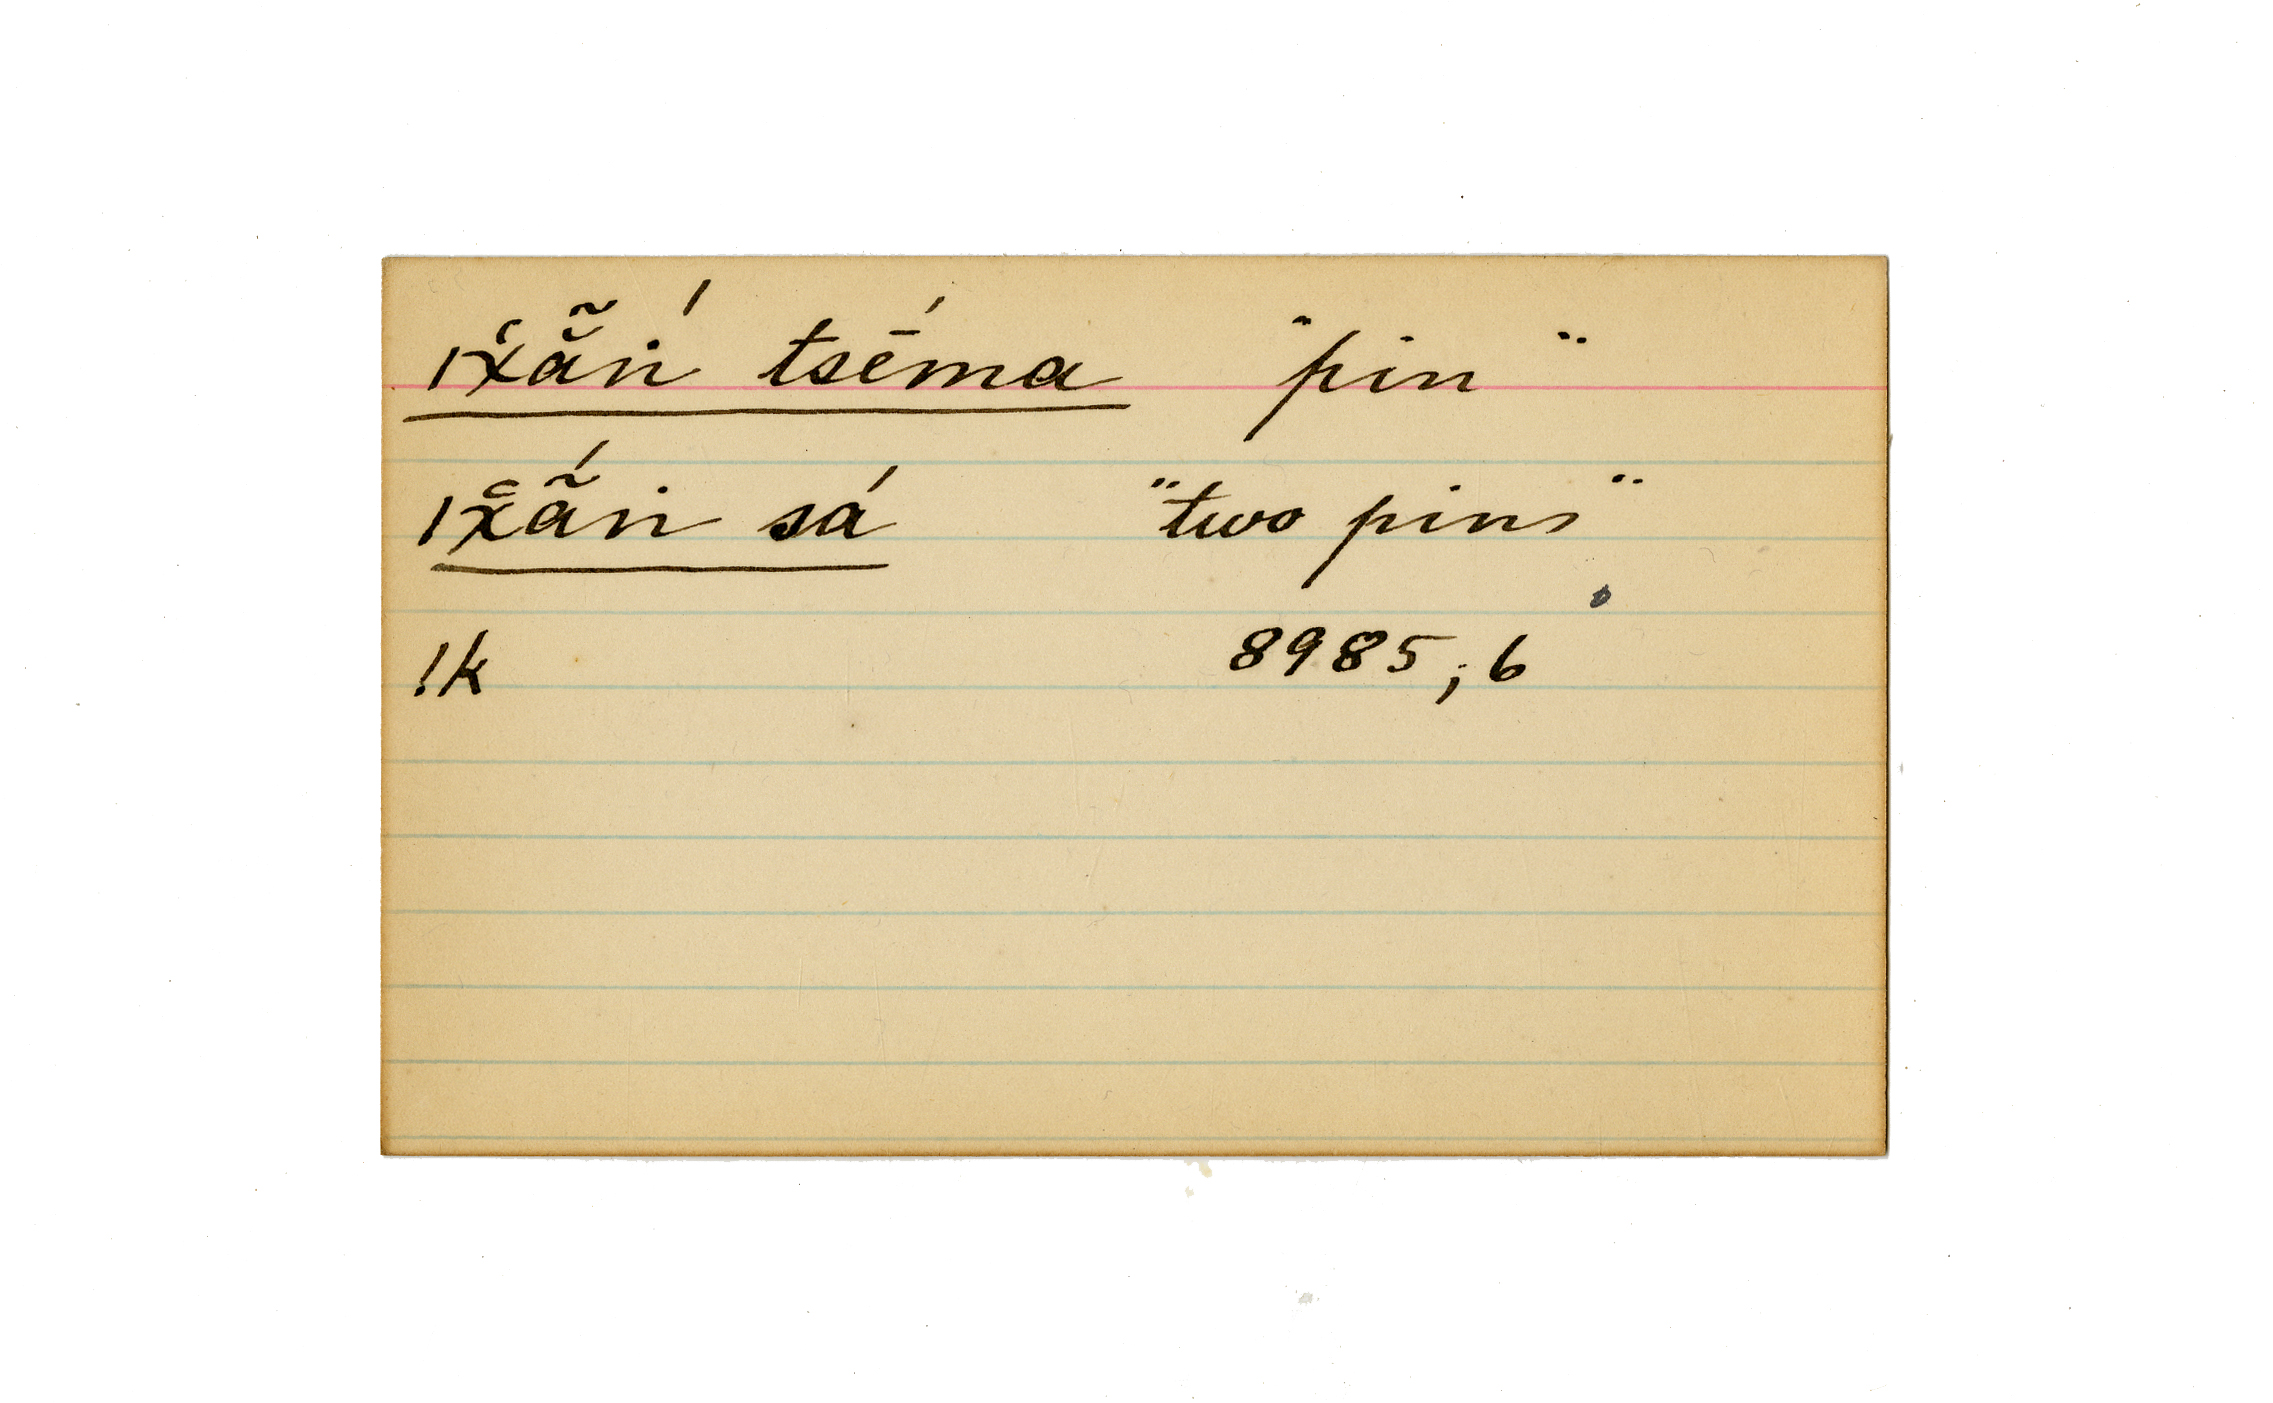 ıx̯̆ã̆ń tsḗma "pin"
ıx̯̆ã̆́n sá "two pins"
!k 8985; 6